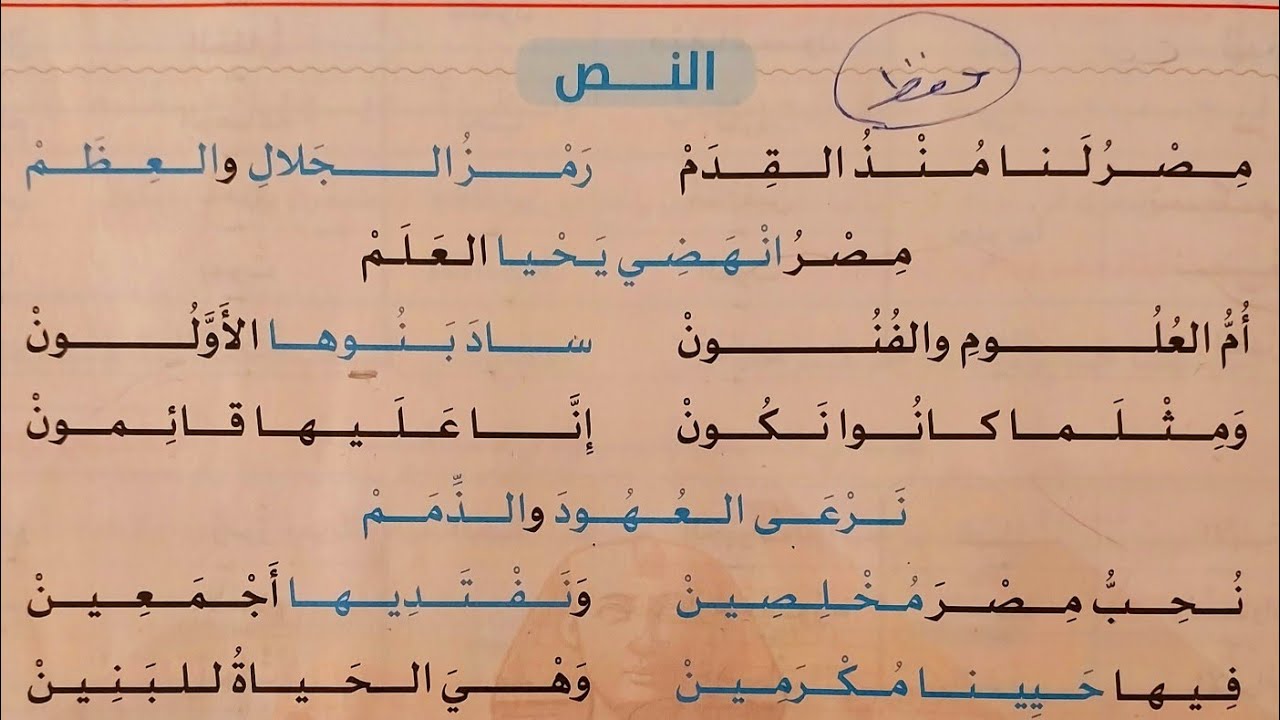 النص
حفظ
مِصْرُ لَنا مُنْذُ القِدَمْ رَمْزُ الجَلالِ والعِظَمْ
مِصْرُ انْهَضِي يَحْيا العَلَمْ
أُمُّ العُلُومِ والفُنُونْ سادَ بَنُوها الأَوَّلُونْ
وَمِثْلَما كانُوا نَكُونْ إِنَّا عَلَيها قائِمونْ
نَرْعَى العُهُودَ والذِّمَمْ
نُحِبُّ مِصْرَ مُخْلِصِينْ وَنَفْتَدِيها أَجْمَعِينْ
فِيها حَيِينا مُكْرَمِينْ وَهْيَ الحَياةُ للبَنِينْ